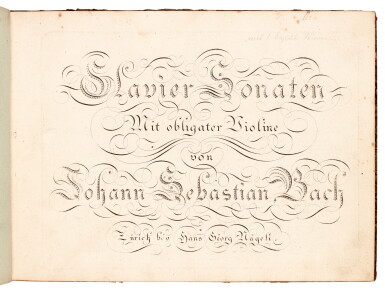 Clavier Sonaten
Mit obligater Violine
von
Johann Sebastian Bach
Zürich bey Hans Georg Nägeli